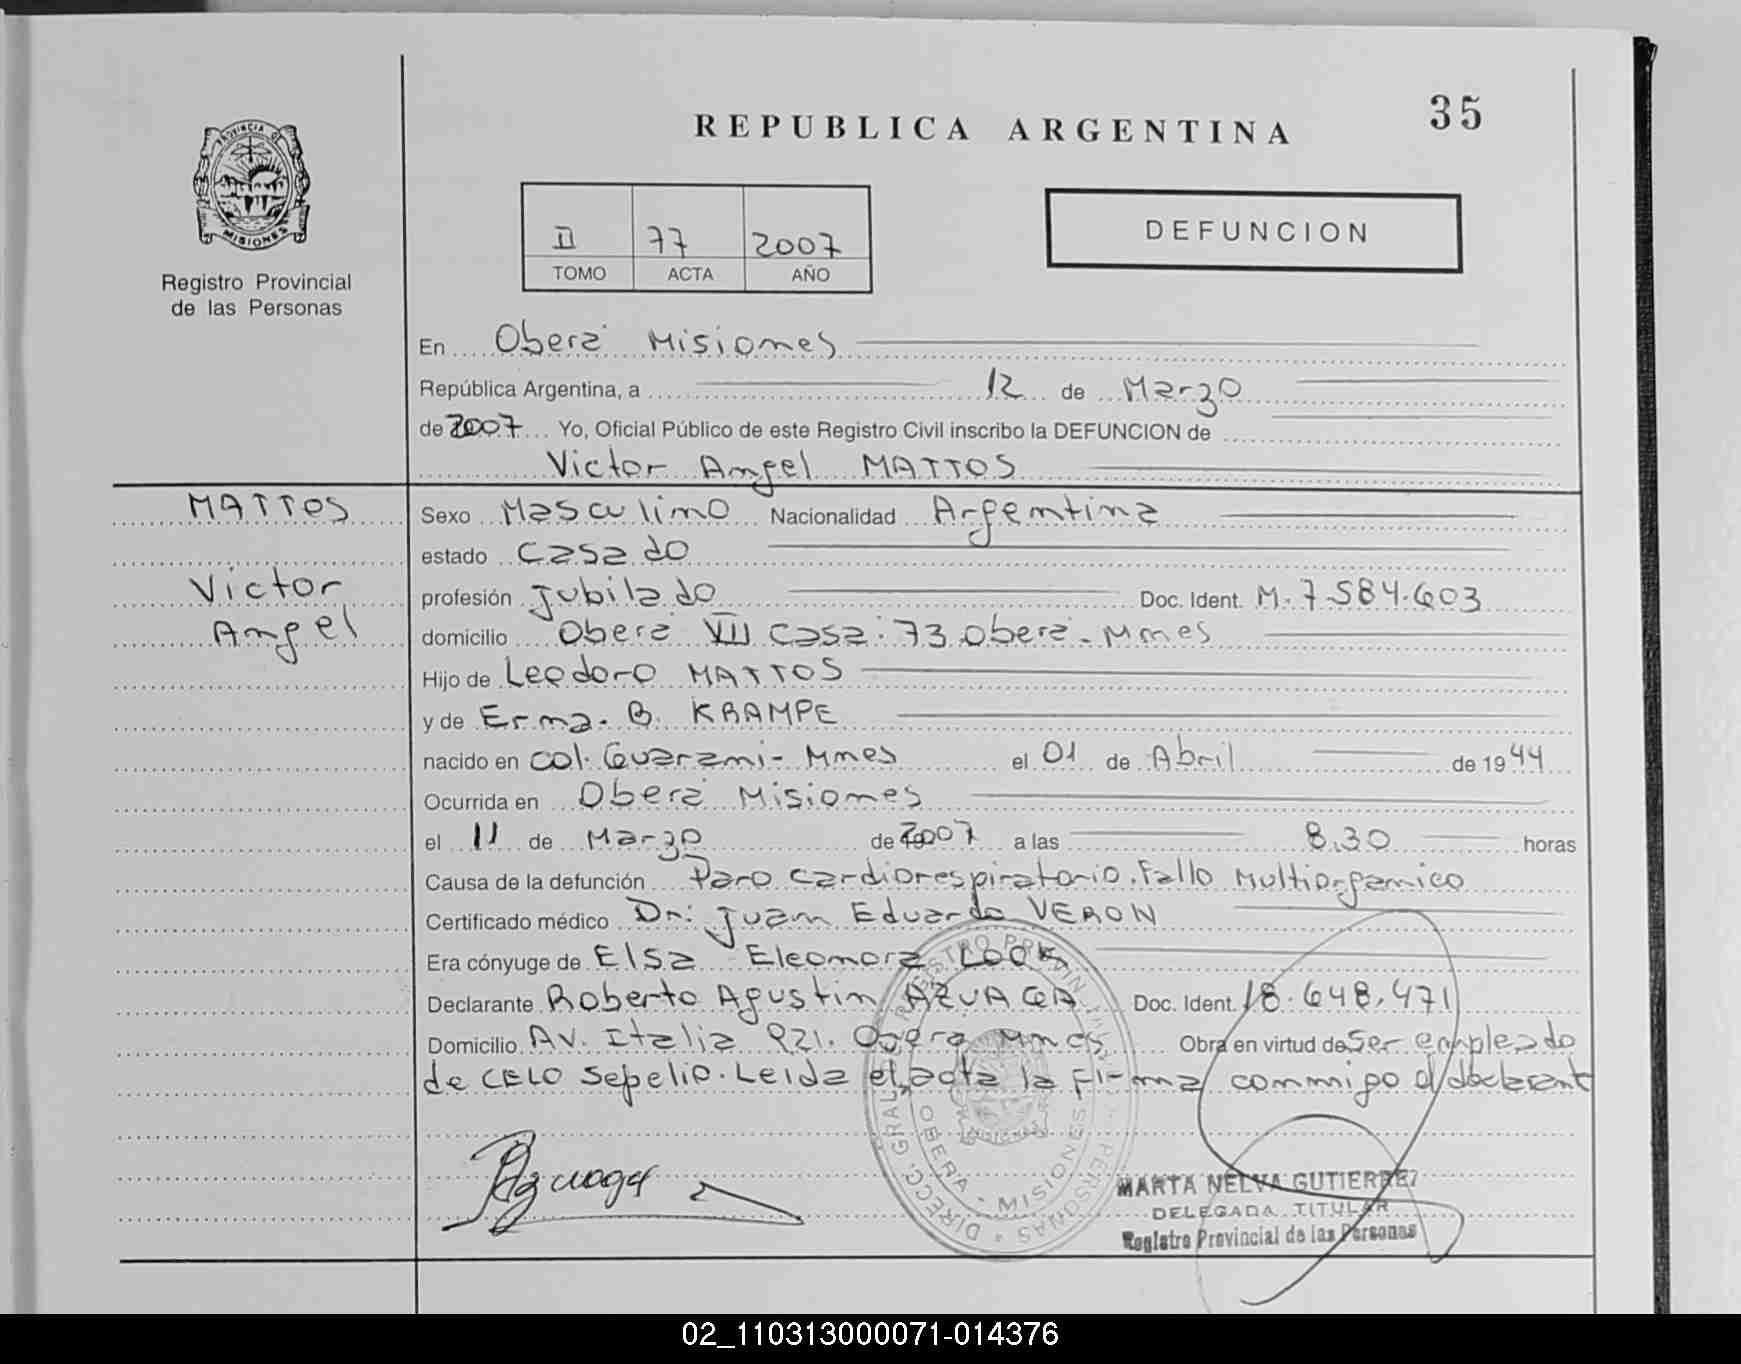 REPUBLICA ARGENTINA
35
PROVINCIA DE
MISIONES
Registro Provincial
de las Personas
II 77 2007
TOMO ACTA AÑO
DEFUNCION
En Oberá Misiones
República Argentina, a 12 de Marzo
de 2007 Yo, Oficial Público de este Registro Civil inscribo la DEFUNCION de
Victor Angel MATTOS
MATTOS
Victor
Angel
Sexo Masculino Nacionalidad Argentina
estado Casado
profesión Jubilado Doc. Ident. M. 7.584.603
domicilio Oberá VII Casa: 73 Oberá - Mnes
Hijo de Leodoro MATTOS
y de Erma. B. KRAMPE
nacido en Col. Guarani - Mnes el 01 de Abril de 1944
Ocurrida en Oberá Misiones
el 11 de Marzo de 2007 a las 8,30 horas
Causa de la defunción Paro cardiorespiratorio. Fallo Multiorganico
Certificado médico Dr: Juan Eduardo VERON
Era cónyuge de Elsa Eleonora LOOK
Declarante Roberto Agustin AZUAGA Doc. Ident. 18.648.471
Domicilio Av. Italia 921. Oberá Mnes Obra en virtud de Ser empleado
de CELO Sepelio. Leida el acta la Firma conmigo el declarant
Azuaga
DIRECC. GRAL. REGISTRO PROVINCIAL PERSONAS
OBERA - MISIONES
MARTA NELVA GUTIERREZ
DELEGADA TITULAR
Registro Provincial de las Personas
02_110313000071-014376